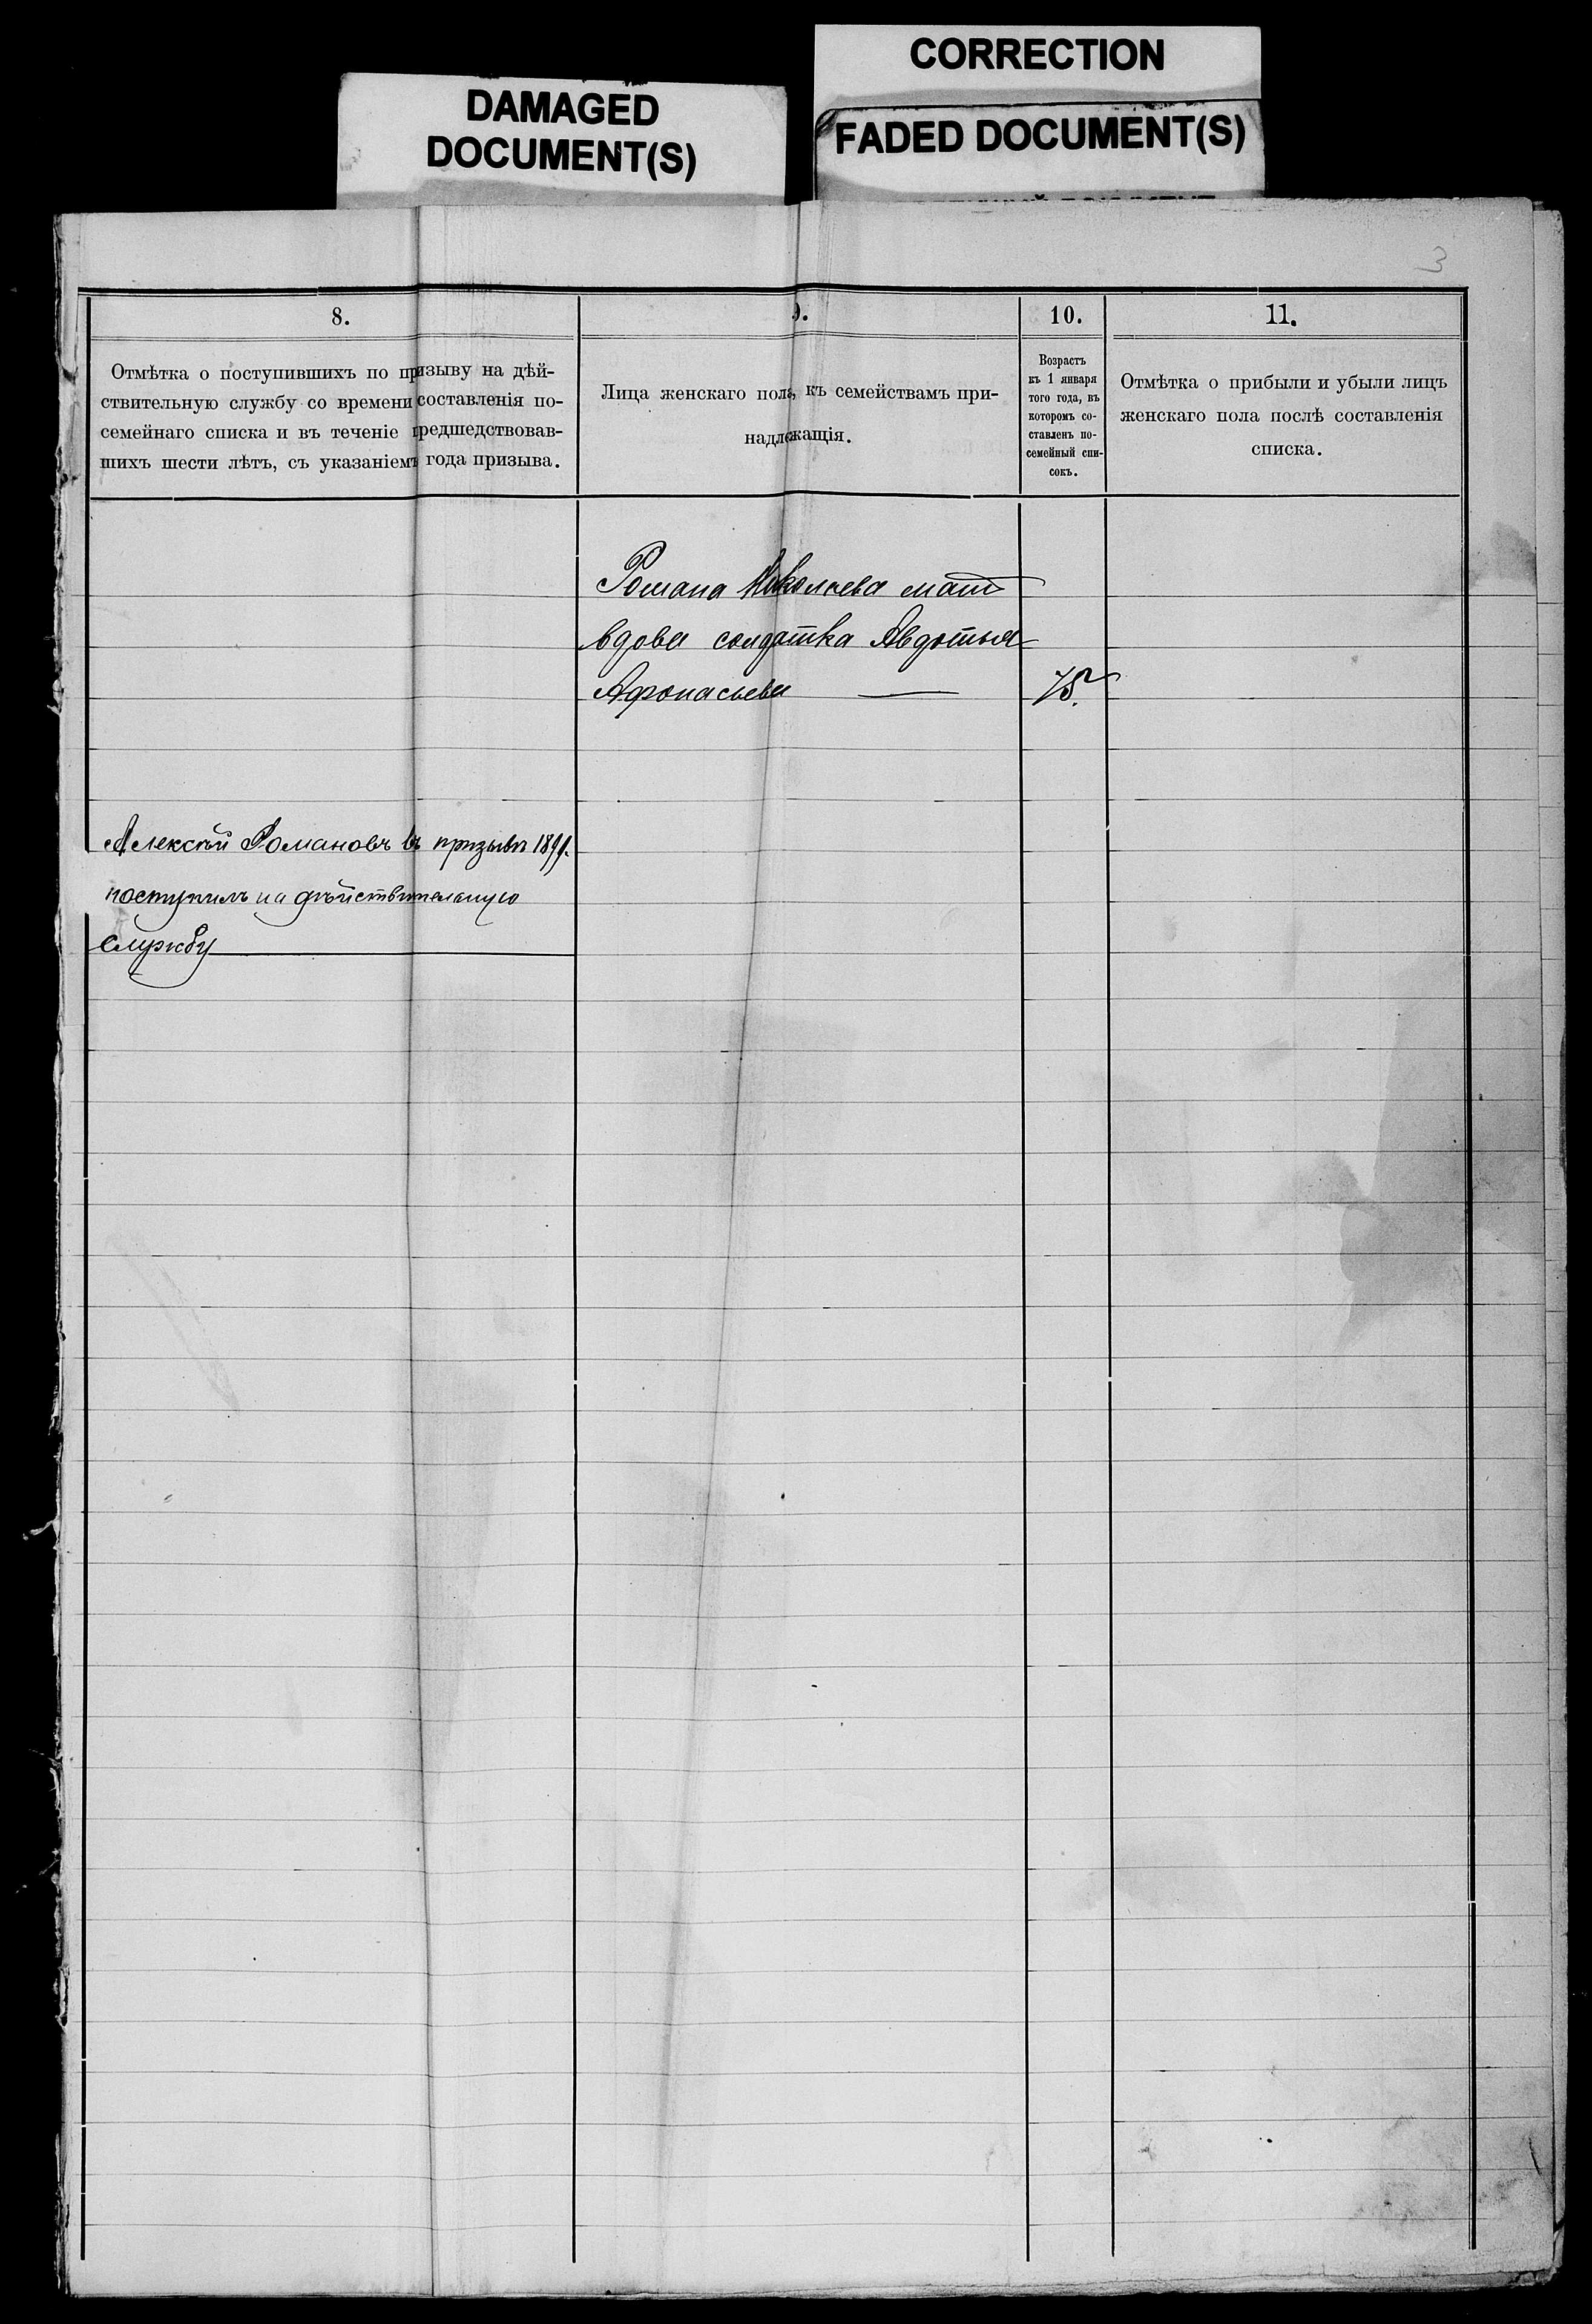 CORRECTION
DAMAGED
DOCUMENT(S)
FADED DOCUMENT(S)
3
8.
Отмѣтка о поступившихъ по призыву на дѣй-
ствительную службу со времени составленія по-
семейнаго списка и въ теченіе предшедствовав-
шихъ шести лѣтъ, съ указаніемъ года призыва.
9.
Лица женскаго пола, къ семействамъ при-
надлежащія.
10.
Возрастъ
къ 1 января
того года, въ
которомъ со-
ставленъ по-
семейный спи-
сокъ.
11.
Отмѣтка о прибыли и убыли лицъ
женскаго пола послѣ составленія
списка.
Романа Николаева мать
вдова солдатка Авдотья
Афонасьева 75.
Алексѣй Романовъ въ призывъ
поступилъ на дѣйствительную
службу